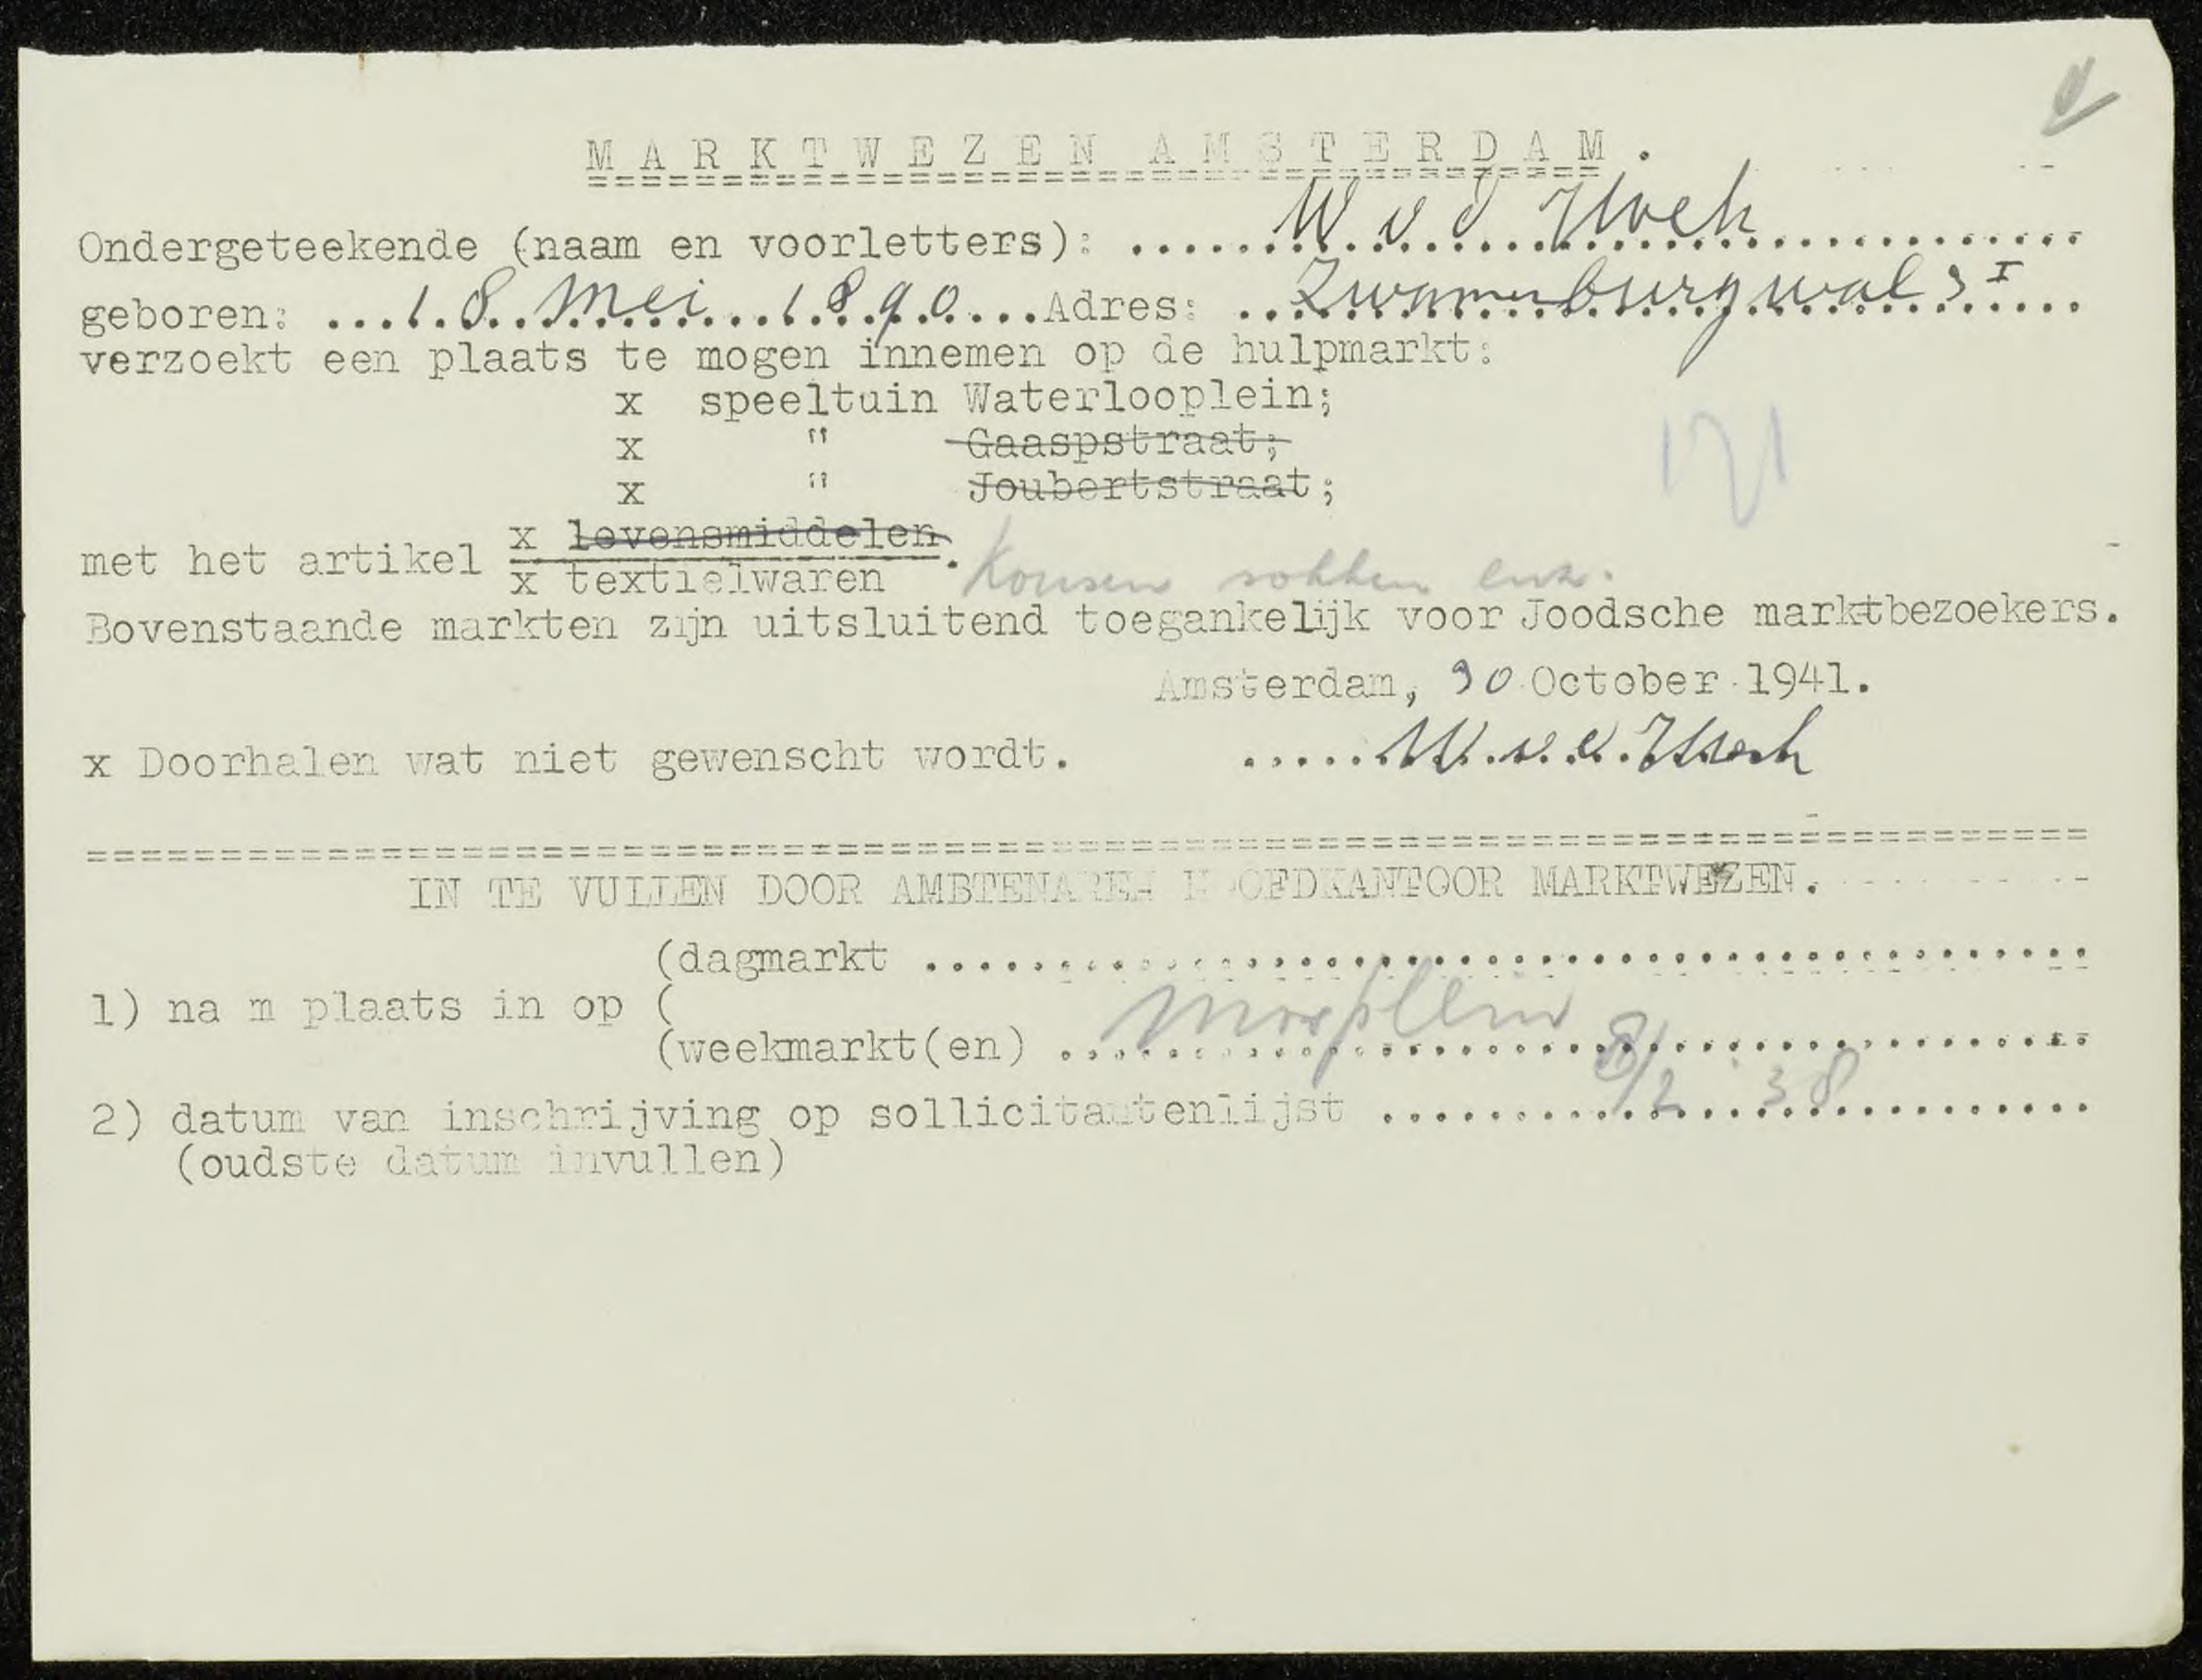 MARKTWEZEN AMSTERDAM.
Ondergeteekende (naam en voorletters): W v d Hoek
geboren: 18 Mei 1890 Adres: Zwanenburgwal 3 I
verzoekt een plaats te mogen innemen op de hulpmarkt:
x speeltuin Waterlooplein;
x " Gaaspstraat;
x " Joubertstraat;
171
met het artikel x levensmiddelen.
x textielwaren Kousen sokken enz.
Bovenstaande markten zijn uitsluitend toegankelijk voor Joodsche marktbezoekers.
Amsterdam, 30 October 1941.
x Doorhalen wat niet gewenscht wordt. W. v. d. Hoek
IN TE VULLEN DOOR AMBTENAREN HOOFDKANTOOR MARKTWEZEN.
(dagmarkt
1) na m plaats in op (
(weekmarkt(en) Mosplein
2) datum van inschrijving op sollicitantenlijst 8/2 38
(oudste datum invullen)